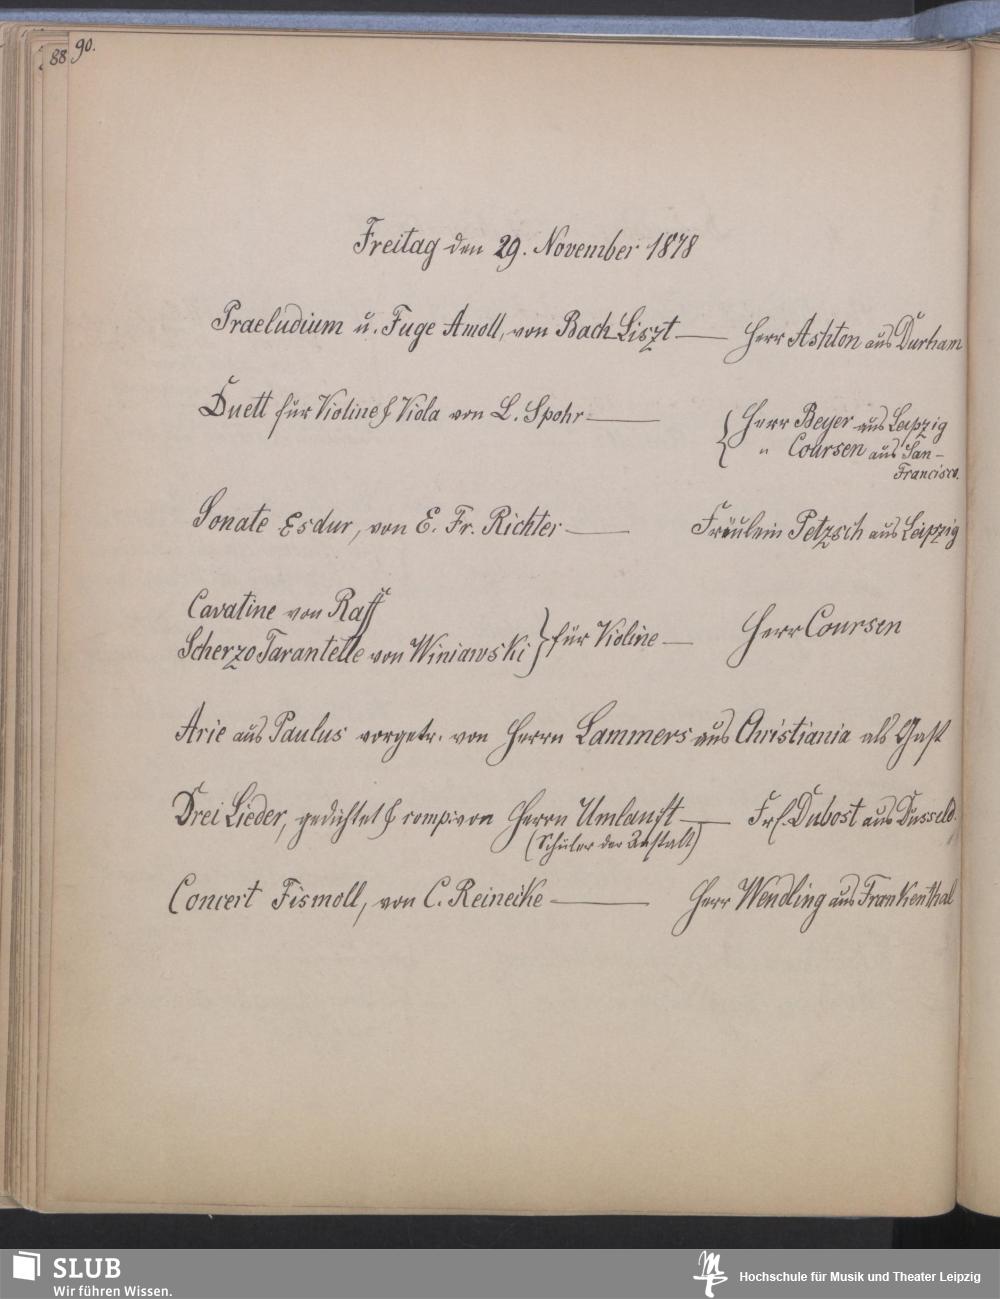 88 90.
Freitag den 29. November 1878
Praeludium u. Fuge Amoll, von Bach-Liszt — Herr Ashton aus Durham
Duett für Violine & Viola von L. Spohr — { Herr Beyer aus Leipzig
" Coursen aus San-
Francisco.
Sonate Esdur, von E. Fr. Richter — Fräulein Petzsch aus Leipzig
Cavatine von Raff
Scherzo Tarantelle von Winiawski } für Violine — Herr Coursen
Arie aus Paulus vorgetr. von Herrn Lammers aus Christiania als Gast
Drei Lieder, gedichtet & comp. von Herrn Umlauft — Frl. Dubost aus Dusseld.
(Schüler der Anstalt)
Concert Fismoll, von C. Reinecke — Herr Wendling aus Frankenthal
SLUB
Wir führen Wissen.
Hochschule für Musik und Theater Leipzig